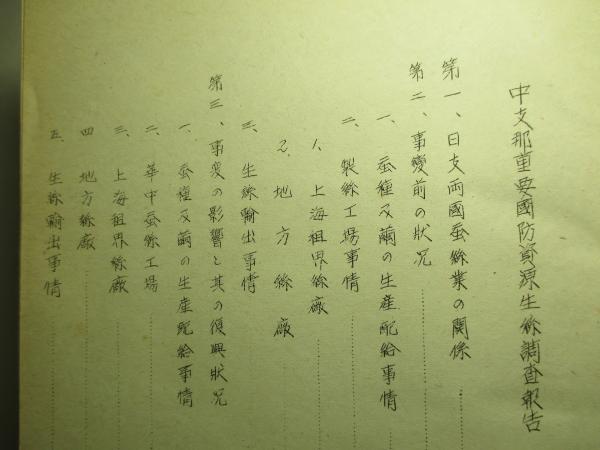 中支那重要國防資源生絲調査報告
第一、日支両國蚕絲業の關係
第二、事変前の狀況
一、蚕種及繭の生産配給事情
二、製絲工場事情
1、上海租界絲廠
2、地方絲廠
三、生絲輸出事情
第三、事変の影響と其の復興狀況
一、蚕種及繭の生産配給事情
二、華中蚕絲工場
三、上海租界絲廠
四 地方絲廠
五、生絲輸出事情